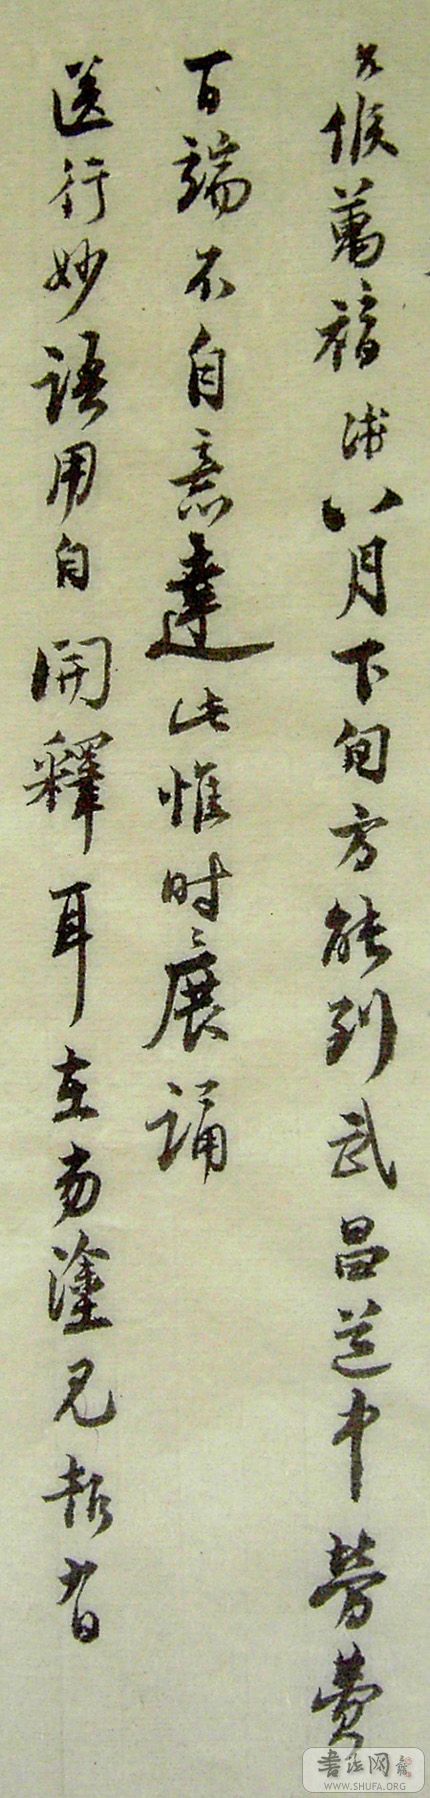 台候萬福游八月下旬方能到武昌道中勞費
百端不自意達此惟時〻展誦
送行妙語用自開釋耳在當塗見報有
書法网
WWW.SHUFA.ORG